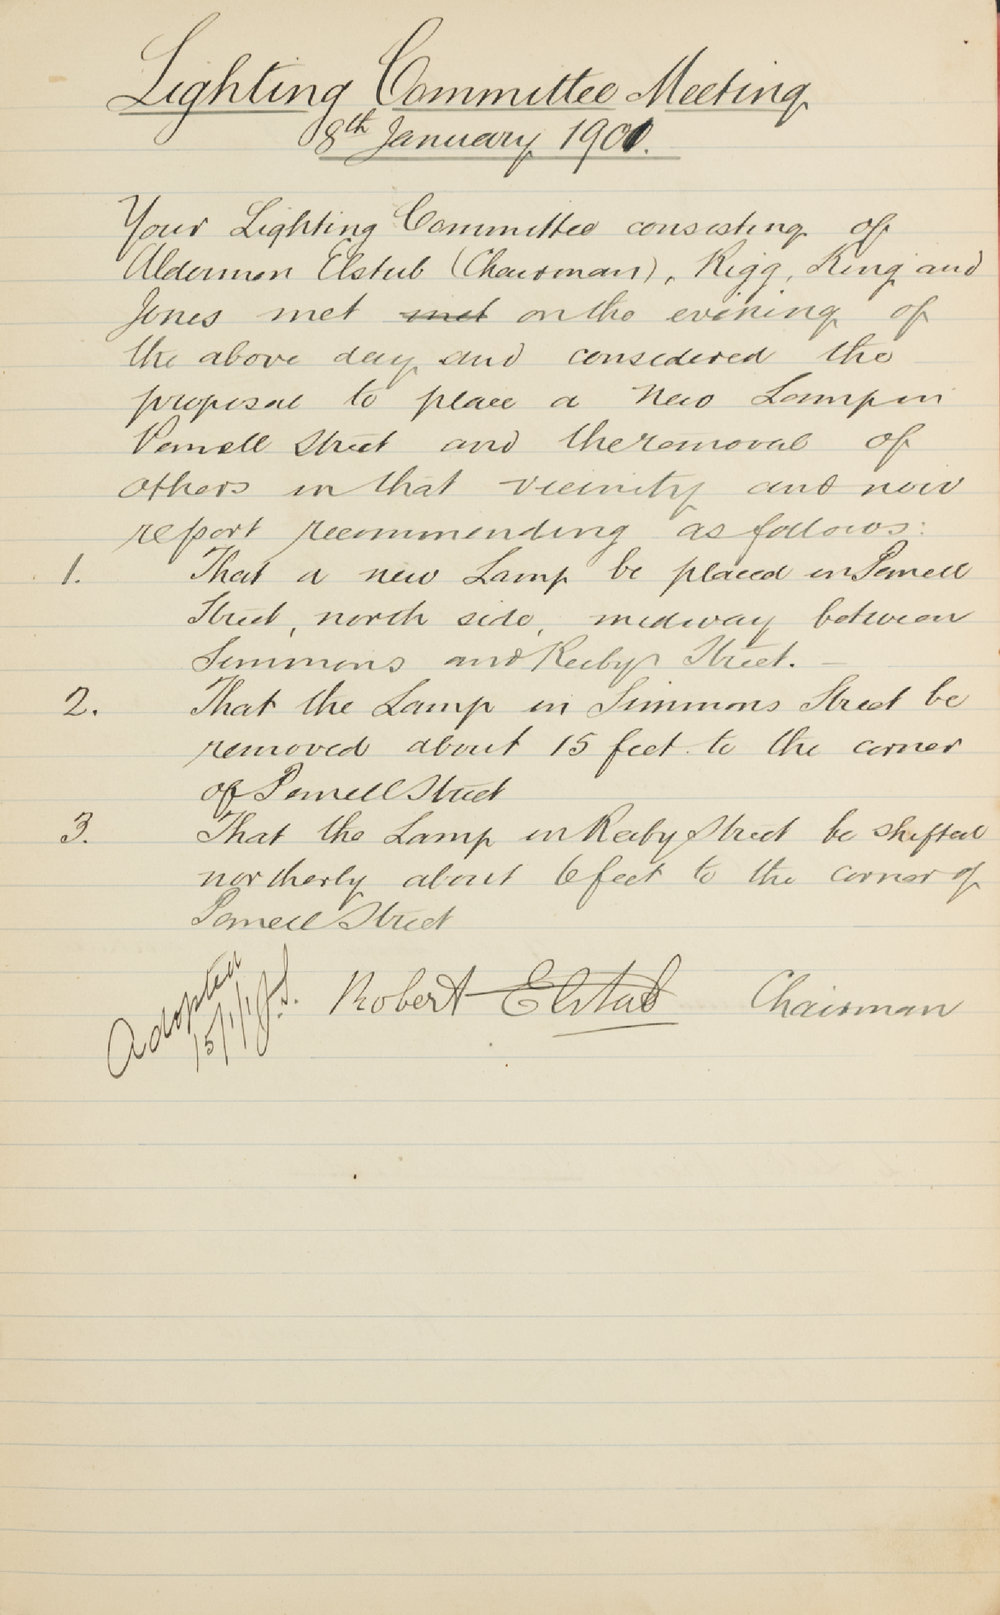 Lighting Committee Meeting
8th January 1901.
Your Lighting Committee consisting of
Aldermen Elstub (Chairman), Rigg, King and
Jones met met on the evening of
the above day and considered the
proposal to place a New Lamp in
Pomell Street and the removal of
others in that vicinity and now
report recommending as follows:
1. That a new Lamp be placed in Pomell
Street, north side, midway between
Simmons and Reiby Street. –
2. That the Lamp in Simmons Street be
removed about 15 feet to the corner
of Pomell Street
3. That the Lamp in Reiby Street be shifted
northerly about 6 feet to the corner of
Pomell Street
Robert Elstub Chairman
Adopted
15/1/1